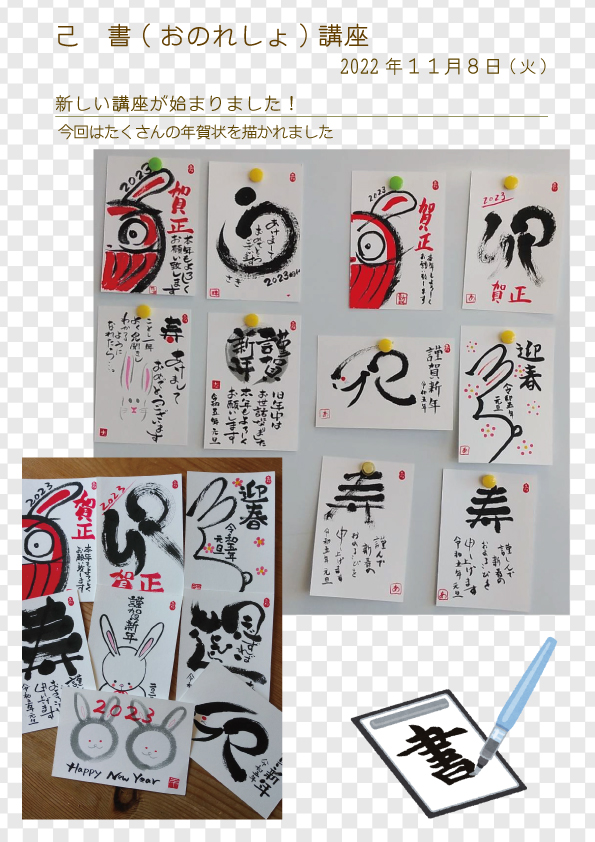 己　書(おのれしょ)講座
2022年11月8日(火)
新しい講座が始まりました！
今回はたくさんの年賀状を描かれました
2023
賀正
本年もよろしく
お願い致します
2023
2023
賀正
2023
卯
賀正
寿
あけまして
おめでとうございます
謹賀
新年
旧年中は
お世話になりました
本年もよろしく
お願いします
令和五年元旦
謹賀新年
令和五年
迎春
令和五年
元旦
寿
謹んで
新春の
およろこびを
申し上げます
令和五年元旦
寿
謹んで
新春の
およろこびを
申し上げます
令和五年元旦
2023
賀正
本年もよろしく
お願い致します
2023
賀正
迎春
令和五年
元旦
寿
謹賀新年
2023
Happy New Year
書